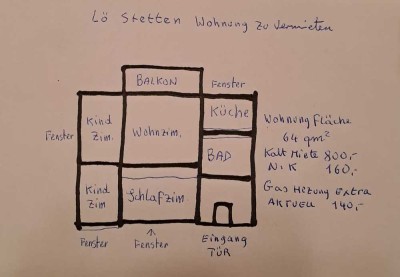 Lö Stetten Wohnung zu vermieten
BALKON
Fenster
Kind
Zim.
Wohnzim.
Küche
Fenster
BAD
Wohnung Fläche
64 qm²
Kalt Miete 800,-
N.K 160,-
Kind
Zim
Schlafzim
Gas Heizung Extra
AKTUELL 140,-
Fenster
Fenster
Eingang
TÜR